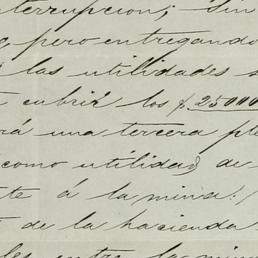 terrupcion; sin
, pero entregando
las utilidades s
cubrir los $25000
rá una tercera pa
como utilidad de
te á la mina.
de la hacienda
les entre la min